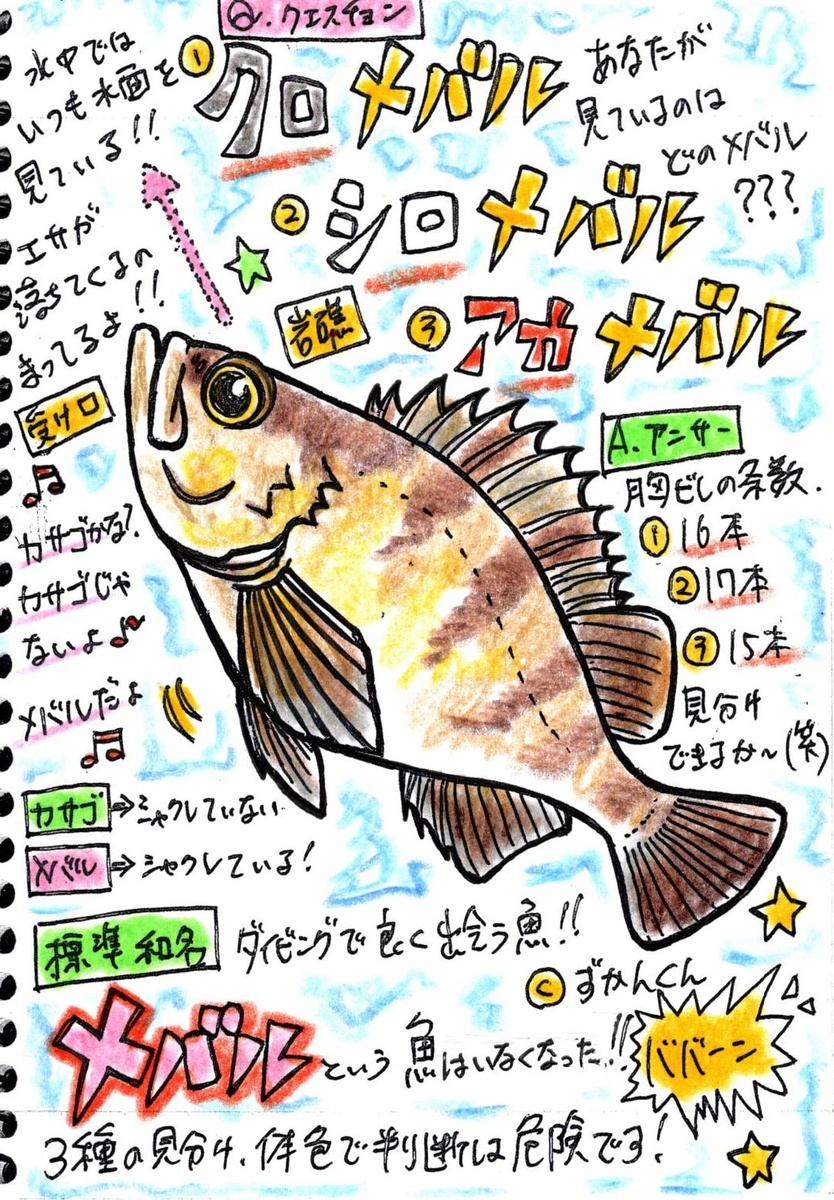 Q.クエスチョン
水中では
いつも水面を
見ている!!
エサが
落ちてくるの
まってるよ!!
① クロメバル
② シロメバル
③ アカメバル
あなたが
見ているのは
どのメバル
???
岩礁
受け口
カサゴかな?
カサゴじゃ
ないよ
メバルだよ
A.アンサー
胸ビレの条数.
① 16本
② 17本
③ 15本
見分け
できるか〜(笑)
カサゴ⇒シャクレていない
メバル⇒シャクレている!
標準和名 ダイビングで良く出会う魚!!
© ずかんくん
メバルという魚はいなくなった!!
ババーン
3種の見分け、体色で判断は危険です!